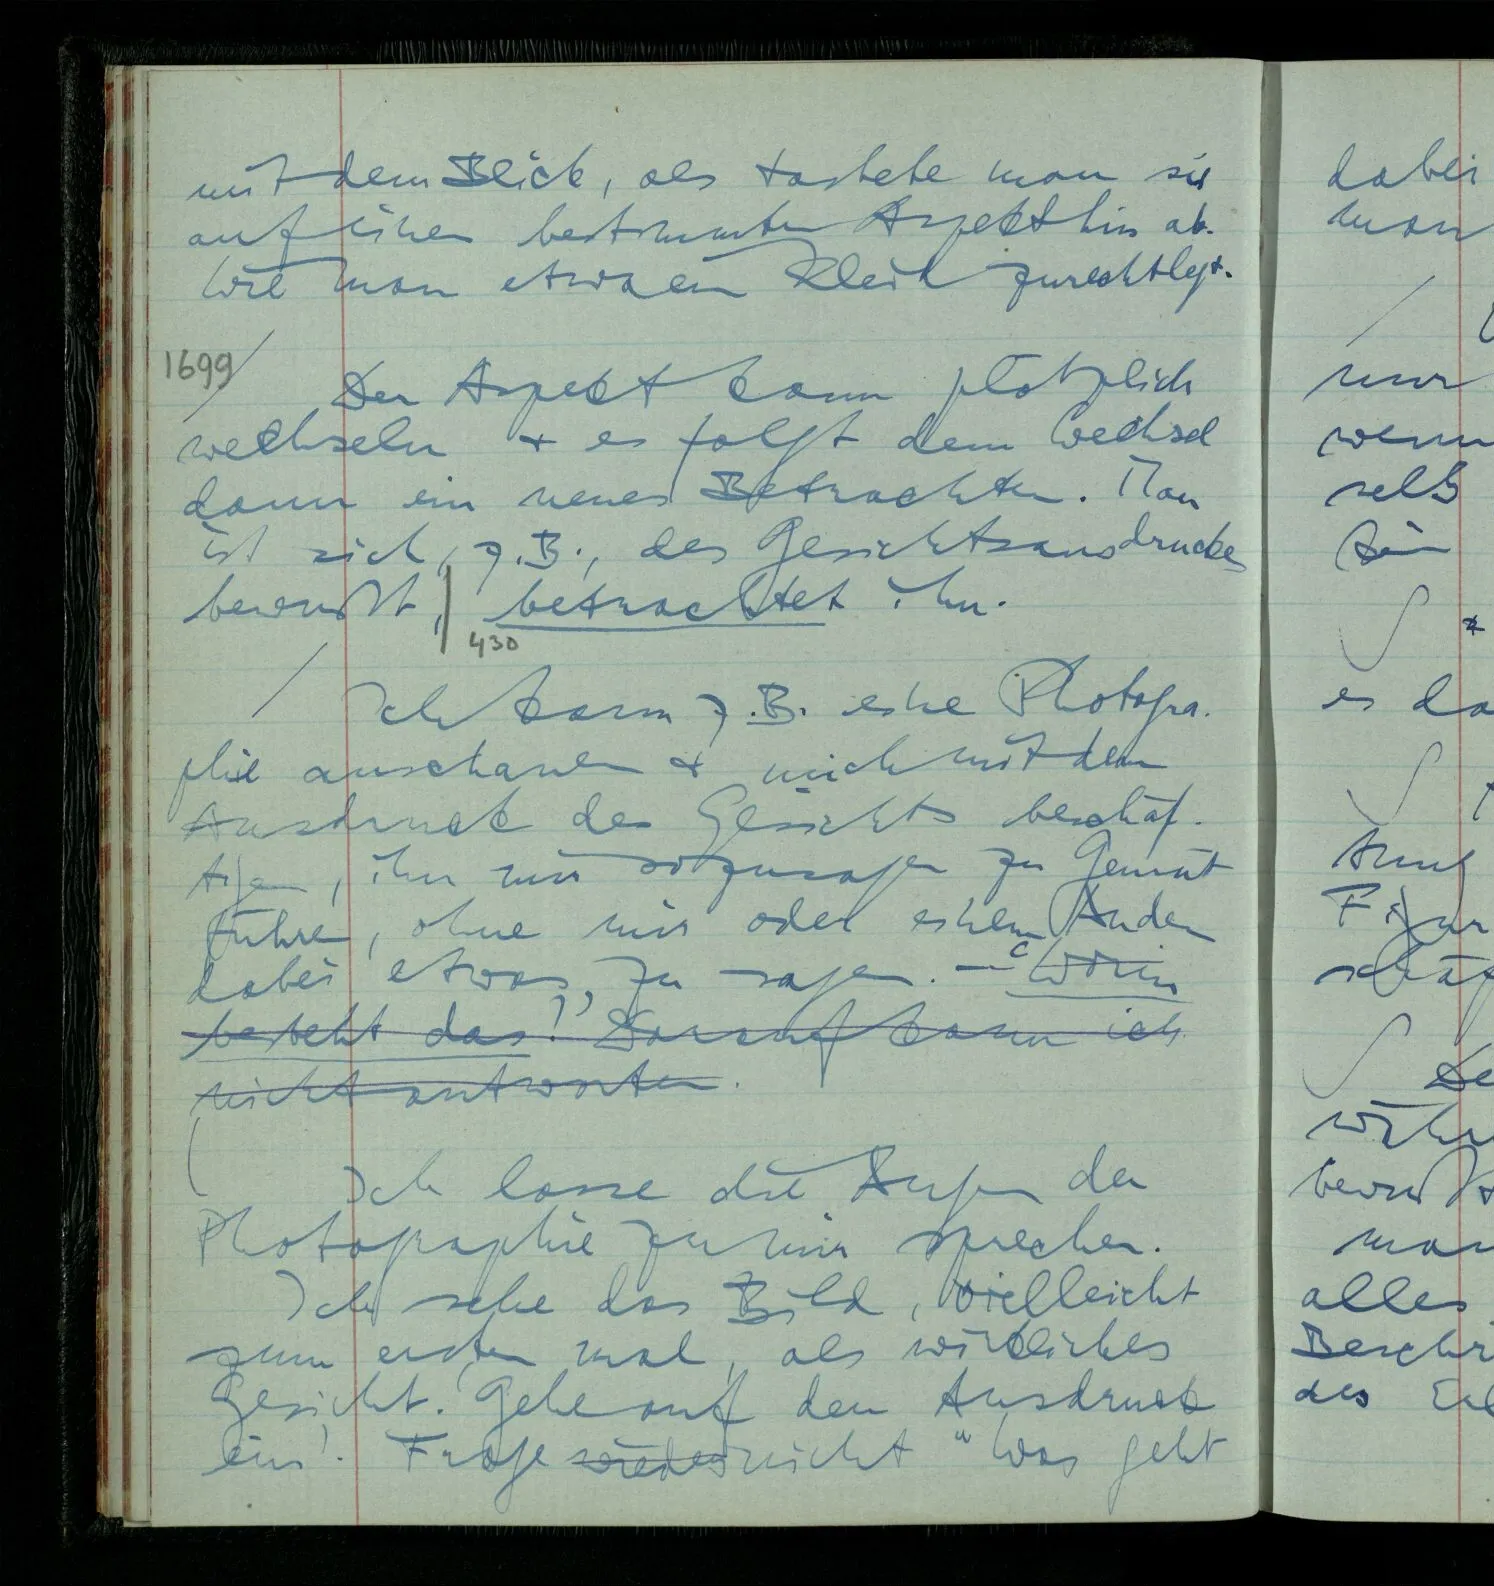 mit dem Blick, als tastete man sie
auf einen bestimmten Aspekt hin ab.
Wie man etwa ein Kleid zurechtlegt.
1699 / Der Aspekt kann plötzlich
wechseln & es folgt dem Wechsel
dann ein neues Betrachten. Man
ist sich, z.B., des Gesichtsausdrucks
bewußt, | betrachtet ihn.
430
/ Ich kann z.B. eine Photogra-
phie anschauen & mich mit dem
Ausdruck des Gesichts beschäf-
tigen, ihn mir sozusagen zu Gemüt
führen, ohne mir oder einem Andern
dabei etwas zu sagen. — Worin
besteht das? Darauf kann ich
nicht antworten.
( Ich lasse die Augen der
Photographie zu mir sprechen.
Ich sehe das Bild, vielleicht
zum ersten mal, als wirkliches
Gesicht. Gehe auf den Ausdruck
ein! Frage wieder nicht "Was geht
dabei
man
/
nur
wenn
selb
*
es da
Figur
schäf
De
wäh
bewußt
man
alles
Beschr
des